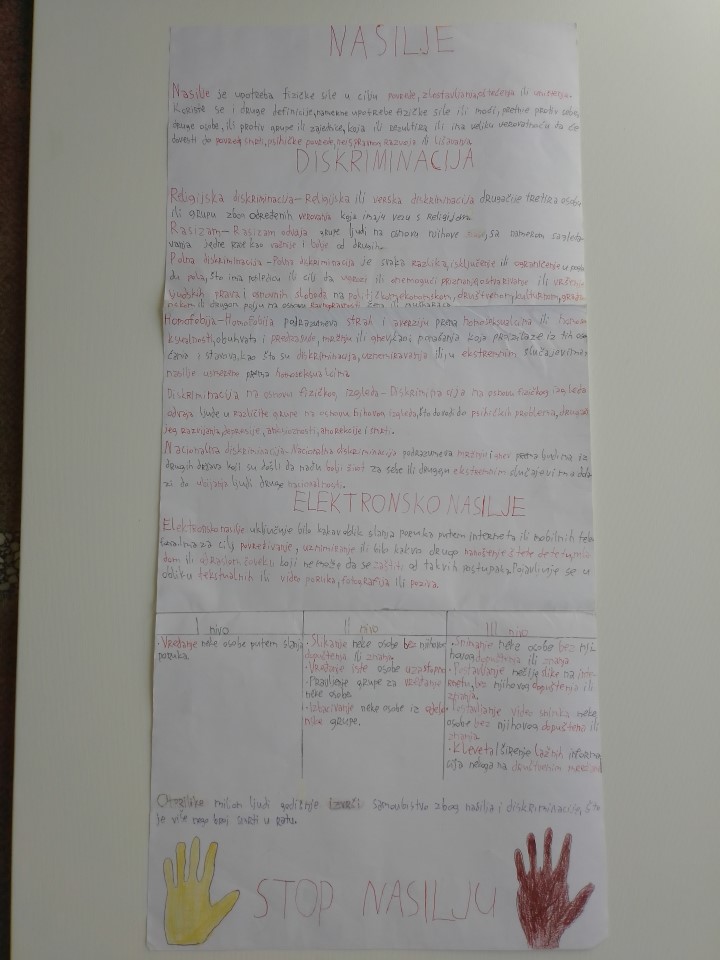 NASILJE
Nasilje je upotreba fizičke sile u cilju povrede, zlostavljanja, oštećenja ili uništenja.
Koriste se i druge definicije, namerne upotrebe fizičke sile ili moći, pretnje protiv sebe,
druge osobe, ili protiv grupe ili zajednice, koja ili rezultira ili ima veliku verovatnoću da će
dovesti do povrede, smrti, psihičke povrede, nerspravnog razvoja ili lišavanja.
DISKRIMINACIJA
Religijska diskriminacija - Religijska ili verska diskriminacija drugačije tretira osobu
ili grupu zbog određenih verovanja koja imaju veze s Religijom.
Rasizam - Rasizam odvaja grupe ljudi na osnovu njihove sa namerom sagleda-
vanja jedne rase kao važnije i bolje od drugih.
Polna diskriminacija - Polna diskriminacija je svaka razlika, isključenje ili ograničenje u pogledu
do pola, što ima posledicu ili cilj da ugrozi ili onemogući priznanje, ostvarivanje ili vršenje
ljudskih prava i osnovnih sloboda na političkom, ekonomskom, društvenom, kulturnom,
ili drugom polju na osnovu ravnopravnosti žena ili muškaraca
Homofobija - Homofobija podrazumeva strah i averziju prema homoseksualcima ili homose-
ksualnosti, obuhvata i predrasude, mržnju ili gnev, kao i ponašanja koja proizilaze iz tih ose-
ćanja i stavova, kao što su diskriminacija, uznemiravanje ili, u ekstremnim slučajovima
nasilje usmeren prema homoseksualcima.
Diskriminacija na osnovu fizičkog izgleda - Diskriminacija na osnovu fizičkog izgleda
odvaja ljude u različite grupe na osnovu njihovog izgleda, što dovodi do psihičkih problema,
razvijanja, depresije, anksioznosti, anoreksije i smrti.
Nacionalna diskriminacija - Nacionalna diskriminacija podrazumeva mržnju i gnev prema ljudima iz
drugih država koji su došli da nađu bolji život za sebe ili drugoga, ekstremnim slučajevima dola-
zi do ubijanja ljudi druge nacionalnosti.
ELEKTRONSKO NASILJE
Elektronsko nasilje uključuje bilo kakav oblik slanja poruka putem interneta ili mobilnih tele-
za cilj povređivanje, uznemiranje ili bilo kakvo drugo nanošenje štete detetu, mla-
dom ili odraslom čoveku koji nemože da se zaštiti od takvih postupaka. Pojavljuje se u
obliku tekstualnih ili video poruka, fotografija ili poziva.
I nivo
· Vređanje neke osobe putem slanja
poruka.
II nivo
· Slikanje neke osobe bez njihovog
dopuštenja ili znanja
· Vređanje iste osobe uzastopno
· Pravljenje grupe za vređanje
neke osobe.
· Izbacivanje neke osobe iz
grupe.
III nivo
· Snimanje neke osobe bez nji-
hovog dopuštenja ili znanja
· Postavljanje nečije slike na inte-
rnetu, bez njihovog dopuštenja ili
znanja.
· Postavljanje video snimka neke
osobe bez njihovog dopuštenja ili
znanja
· Kleveta (širenje lažnih informa-
cija nekoga na društvenim mrežama
Otprilike milion ljudi godišnje izvrši samoubistvo zbog nasilja i diskriminacije, što
je više nego broj smrti u ratu.
STOP NASILJU